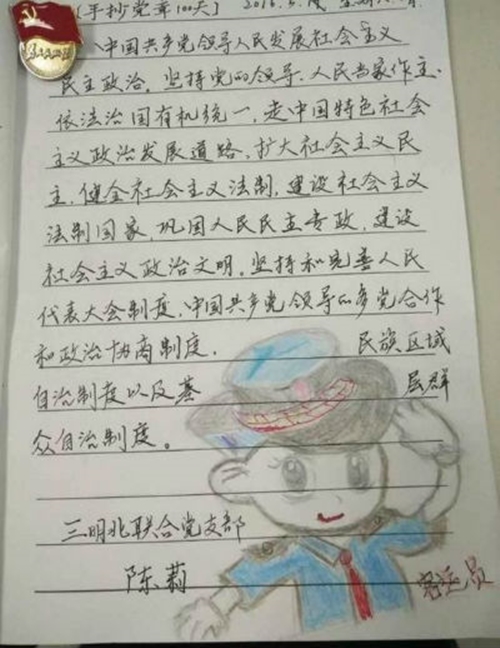 〔手抄党章100天〕 2016.5.
中国共产党领导人民发展社会主义
民主政治。坚持党的领导、人民当家作主、
依法治国有机统一,走中国特色社会
主义政治发展道路,扩大社会主义民
主,健全社会主义法制,建设社会主义
法制国家,巩固人民民主专政,建设
社会主义政治文明。坚持和完善人民
代表大会制度、中国共产党领导的多党合作
和政治协商制度、民族区域
自治制度以及基 民群
众自治制度。
三明北联合党支部
陈莉
客运员